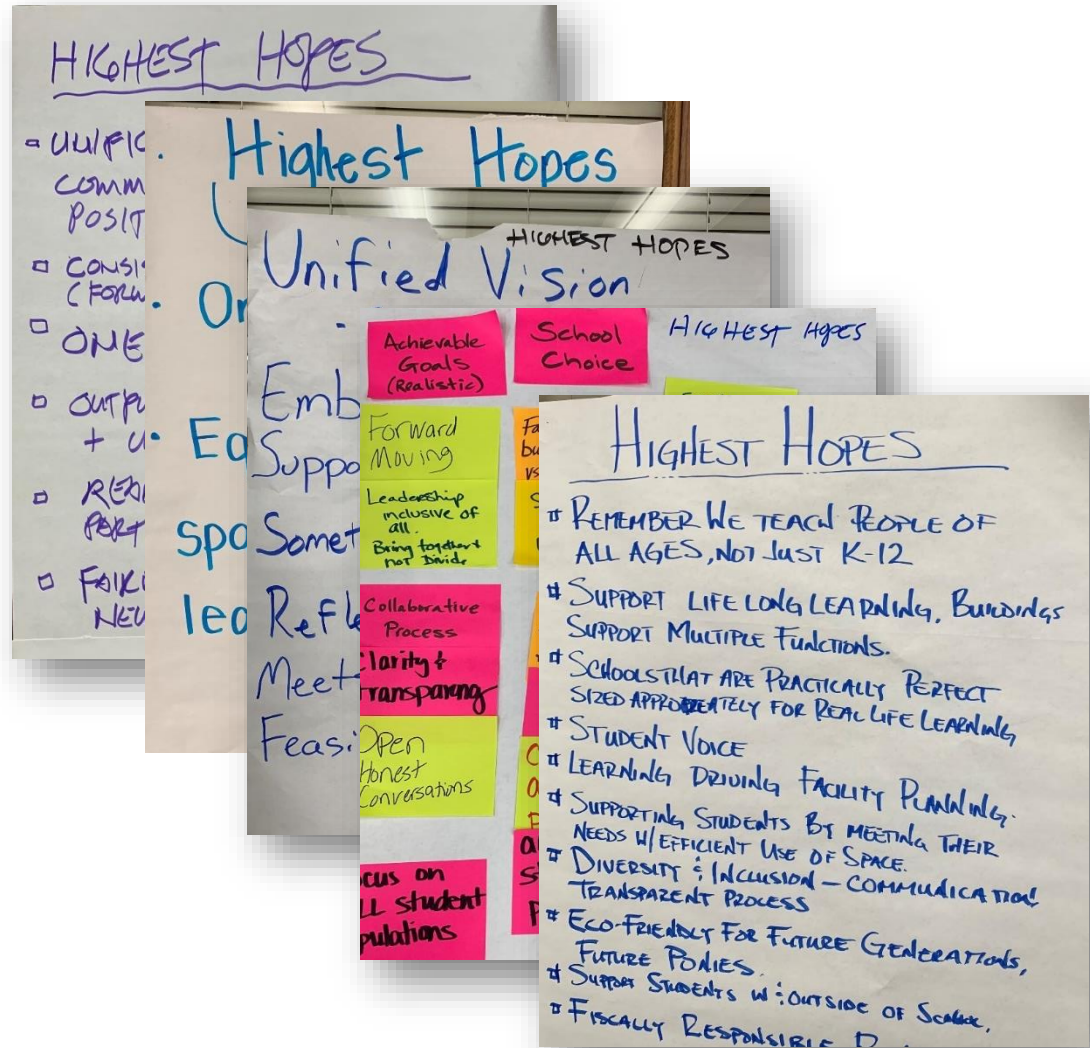 HIGHEST HOPES
UNIFIC
COMM
POSIT
CONSI
(FORW
ONE
OUTPU
+ U
REA
PART
FAIR
NEU
Highest Hopes
Or
Eq
spa
lea
HIGHEST HOPES
Unified Vision
Emb
Suppo
Somet
Refle
Meet
Feasi
HIGHEST HOPES
Achievable
Goals
(Realistic)
School
Choice
Forward
Moving
Fa
bu
vs
Leadership
inclusive of
all.
Bring together &
not Divide
Collaborative
Process
larity &
ransparency
Open
Honest
Conversations
cus on
LL student
pulations
HIGHEST HOPES
REMEMBER WE TEACH PEOPLE OF
ALL AGES, NOT JUST K-12
SUPPORT LIFE LONG LEARNING, BUILDINGS
SUPPORT MULTIPLE FUNCTIONS.
SCHOOLS THAT ARE PRACTICALLY PERFECT
SIZED APPROPRIATELY FOR REAL LIFE LEARNING
STUDENT VOICE
LEARNING DRIVING FACILITY PLANNING.
SUPPORTING STUDENTS BY MEETING THEIR
NEEDS W/ EFFICIENT USE OF SPACE.
DIVERSITY & INCLUSION – COMMUNICATION!
TRANSPARENT PROCESS
ECO-FRIENDLY FOR FUTURE GENERATIONS,
FUTURE PONIES.
SUPPORT STUDENTS W & OUTSIDE OF SCHOOL.
FISCALLY RESPONSIBLE